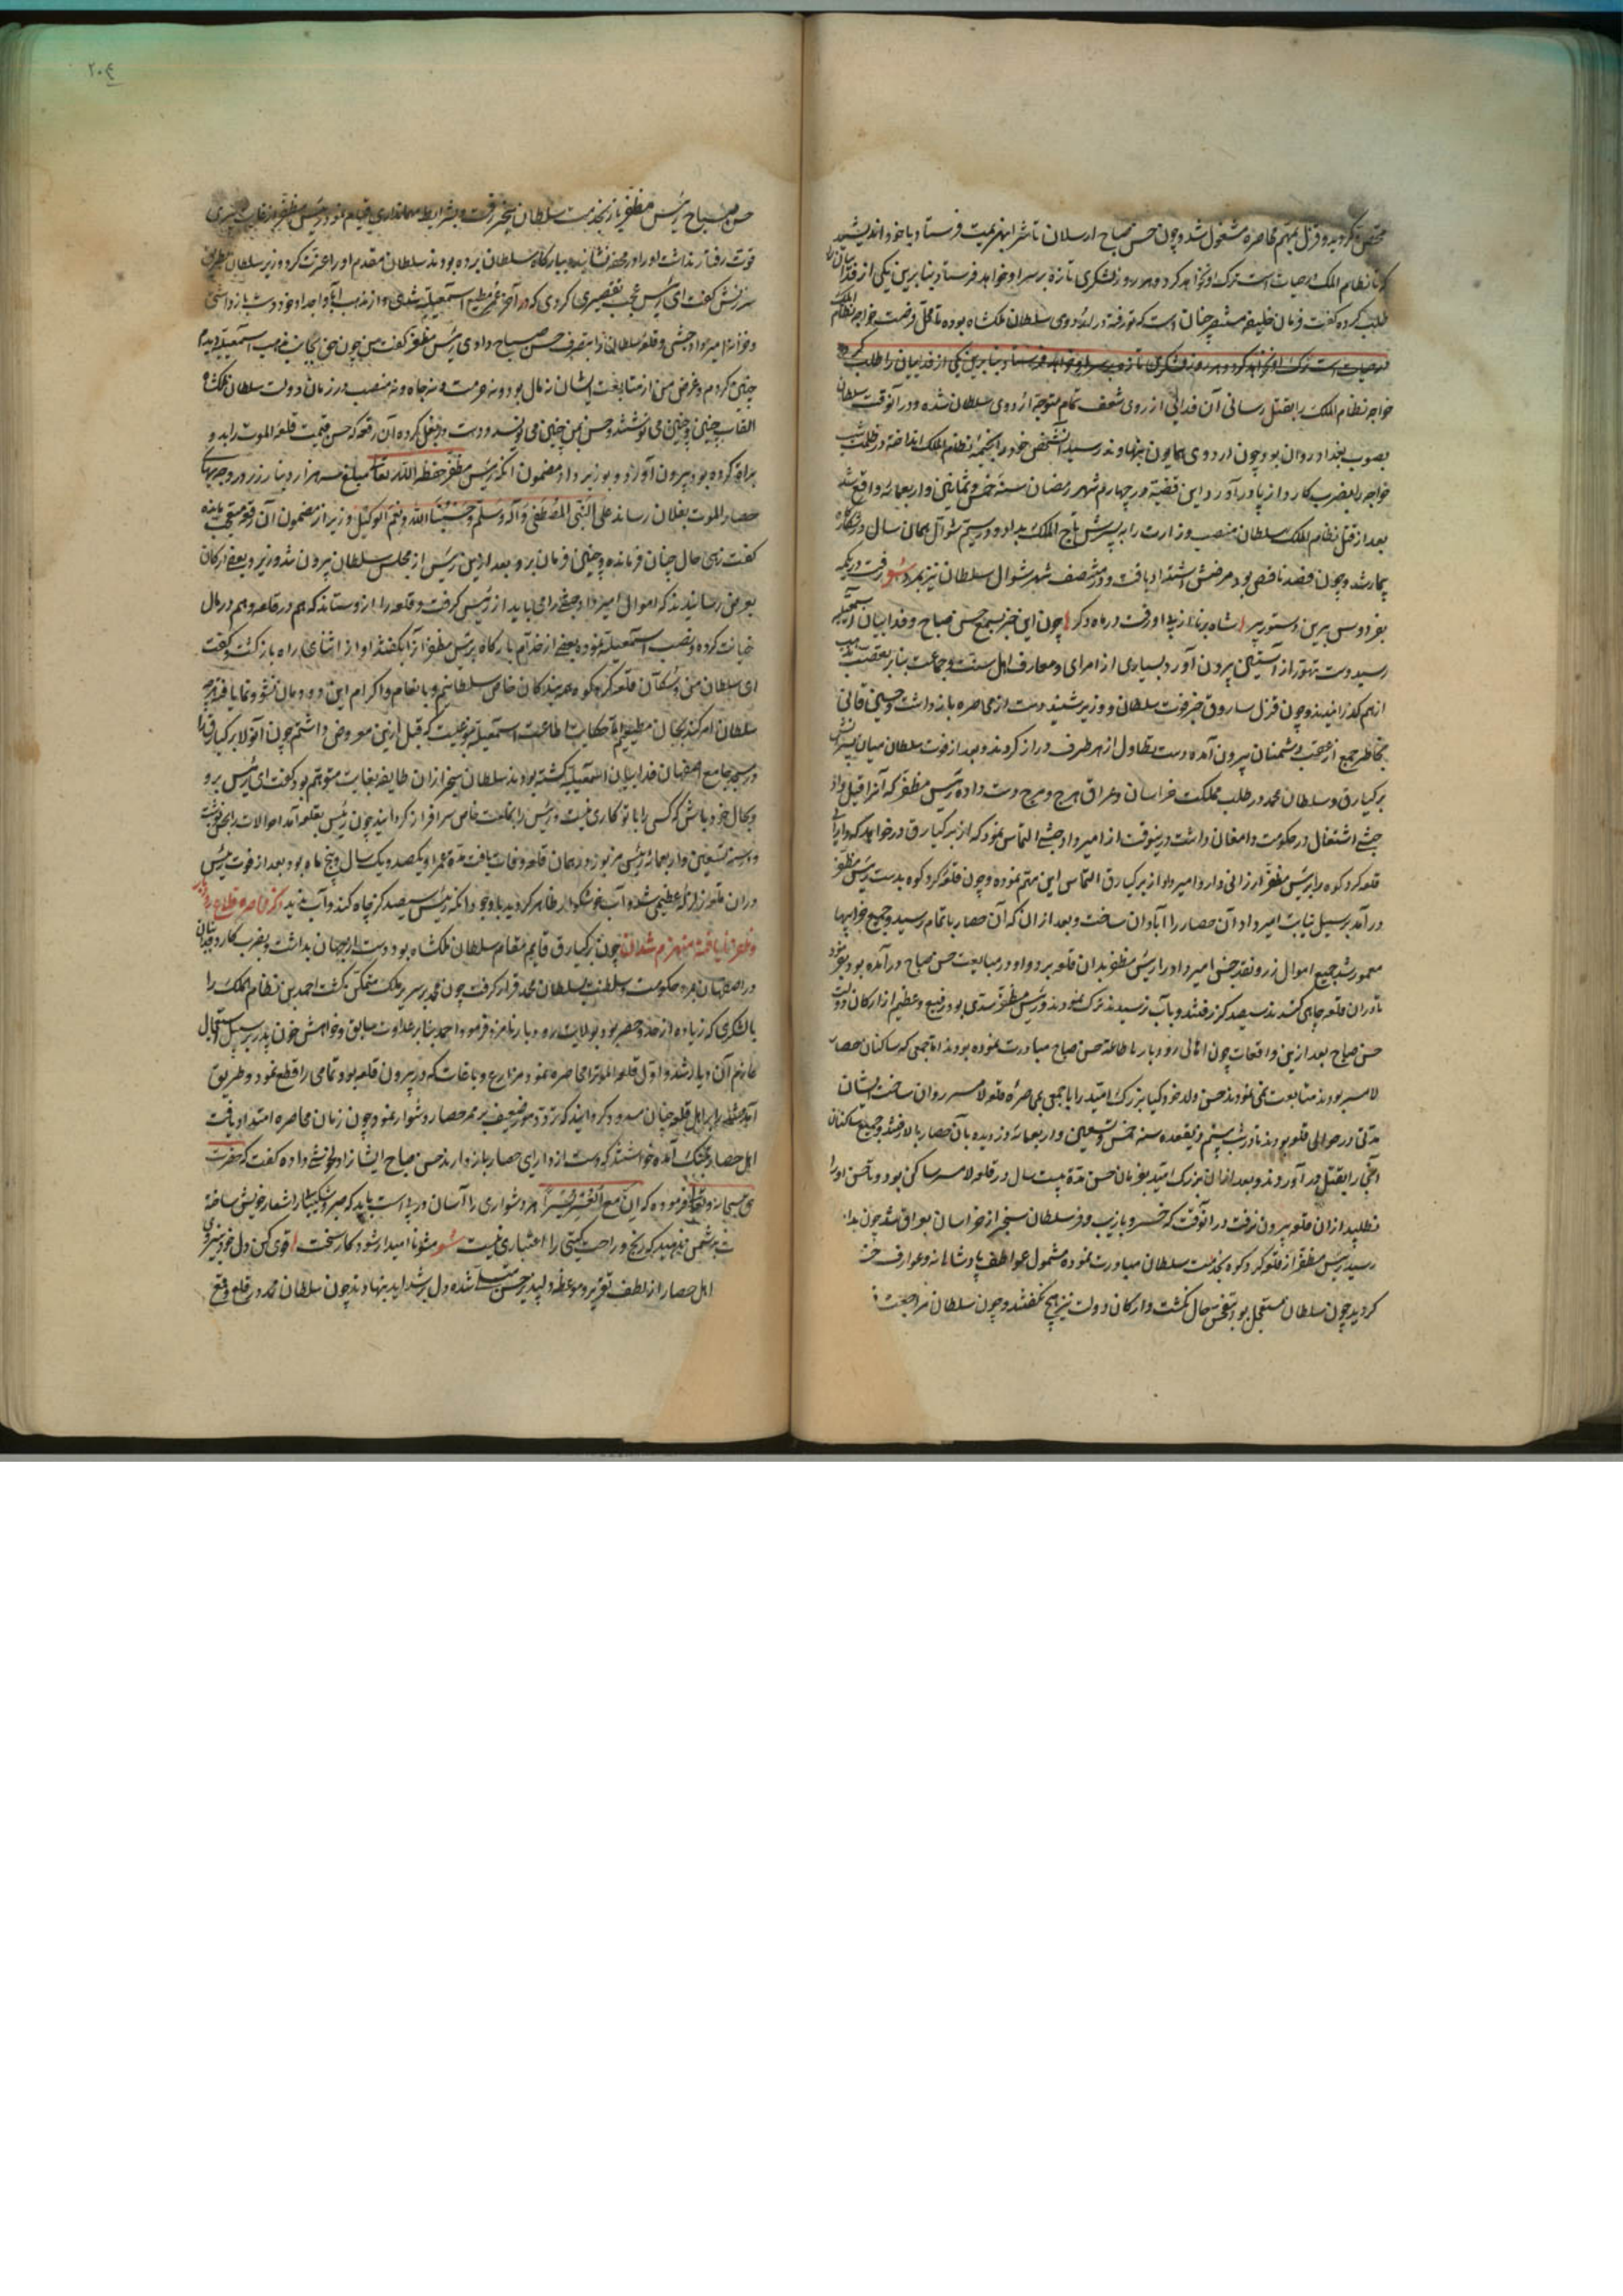 متحصن گردید و قزل بمهم محاصره مشغول شد و چون حسن صباح ارسلان تاش را بهزیمت فرستاد با خود اندیشید
که تا نظام الملک در حیات است ترک او نخواهد کرد و هر روز لشکری تازه بر سر او خواهد فرستاد بنابرین یکی از فدائیان را
طلب کرده گفت فرمان خلیفه مستنصر چنان است که تو رفته در اردوی سلطان ملکشاه بوده تا محل فرصت خواجه نظام الملک
در حیات است ترک او نخواهد کرد و هر روز لشکری تازه بر سر او خواهد فرستاد بنابرین یکی از فدائیان را طلب کرده
خواجه نظام الملک را بقتل رسانی آن فدائی از روی شعف تمام متوجه اردوی سلطان شده و در آنوقت سلطان
بصوب بغداد روان بود و چون اردوی همایون بنهاوند رسید آن شخص خود را بخیمه نظام الملک انداخته در ظلمت شب
خواجه را بضرب کارد از پا در آورد و این قضیه در چهارم شهر رمضان سنه خمس و ثمانین و اربعمائه واقع شد
بعد از قتل نظام الملک سلطان منصب وزارت را به تاج الملک بداد و در سیم شوال همان سال در شکارگاه
بیمار شد و چون فصد ناقص بود مرضش اشتداد یافت و در منتصف شهر شوال سلطان نیز بمرد شعر رفت در یکمه
بفردوس برین دستور پیر شاه برنا از پی او رفت در ماه دگر چون این خبر بسمع حسن صباح و فدائیان اسمعیلیه
رسید دست تهور از آستین بیرون آورد بسیاری از امرای و معارف اهل سنت و جماعت بنابر تعصب مذهب
از هم گذرانیدند و چون قزل ساروق خبر فوت سلطان و وزیر شنید دست از محاصره باز داشت و حسین قائنی
بخاطر جمع از دشمنان بیرون آمده دست تطاول از هر طرف دراز کردند و بعد از فوت سلطان میان پسرانش
برکیارق و سلطان محمد در طلب مملکت خراسان و عراق هرج و مرج دست داده رئیس مظفر که آنرا قبل داد
حبشی اشتغال در حکومت دامغان داشت درینوقت از امیر داد حبشی التماس نمود که از برکیارق درخواهد که دارائی
قلعه گردکوه را برئیس مظفر ارزانی دارد امیر داد از برکیارق التماس این مهم نموده و چون قلعه گردکوه بدست رئیس مظفر
در آمد بر سبیل نیابت امیر داد آن حصار را آبادان ساخت و بعد از ان که آن حصار باتمام رسید و جمیع خرابیها
معمور شد جمیع اموال زر و نقد جنس امیر داد را رئیس مظفر بدان قلعه برد و او در مبایعت حسن صباح در آمده بود بفرمود
تا دران قلعه چاهی کندند سیصد گز رفتند و بآب نرسیدند ترک نمودند و رئیس مظفر سدی بود رفیع و عظیم از ارکان دولت
حسن صباح بعد ازین واقعات چون اهالی رودبار باطاعت حسن صباح مبادرت نموده بودند اما جمعی که ساکنان حصار
لامسر بودند متابعت نمی نمودند حسن ولد خود کیا بزرگ امید را با جمعی بمحاصره قلعه لامسر روان ساخت ایشان
مدتی در حوالی قلعه بودند تا در شب بیستم ذیقعده سنه خمس و تسعین و اربعمائه دزدیده بآن حصار بالا رفتند و جمیع ساکنان
آنجا را بقتل در آوردند و بعد از ان بزرگ امید بفرمان حسن مدة بیست سال در قلعه لامسر ساکن بود و تا حسن او را
نطلبید از ان قلعه بیرون نرفت در آنوقت که خسرو با زیب و فر سلطان سنجر از خراسان بعراق میشد چون بدا
رسید رئیس مظفر از قلعه گردکوه بخدمت سلطان مبادرت نموده مشمول عواطف پادشاهانه و عوارف خسر
گردید چون سلطان مستعجل بود تفحص حال نگشت و ارکان دولت نیز هیچ نگفتند و چون سلطان مراجعت
۲۰۴
حسن صباح رئیس مظفر باز بخدمت سلطان سنجر رفت و بشرایط مهمانداری قیام نمود و رئیس مظفر از غایت پیری
قوت رفتار نداشت او را در محفه نشانیده ببارگاه سلطان برده بودند سلطان مقدم او را عزت کرد وزیر سلطان بطریق
سرزنش گفت ای رئیس عجب تقصیری کردی که در آخر عمر مطیع اسمعیلیه شدی و از مذهب آبا و اجداد خود دست باز داشتی
و خزانه امیر داد حبشی و قلعه سلطانی را بتصرف حسن صباح دادی رئیس مظفر گفت من چون حق بجانب مذهب اسمعیلیه دیدم
چنین کردم و غرض من از متابعت ایشان نه مال بود و نه حرمت و نه جاه و نه منصب در زمان دولت سلطان ملکشاه
القاب چنین و چنین می نوشتند و حسن بمن چنین می نویسد و دست در بغل کرده آن رقعه که حسن قیمت قلعه الموت را بدو
براة کرده بود بیرون آورد و بوزیر داد مضمون آنکه رئیس مظفر حفظه الله تعالی مبلغ سه هزار دینار زر در وجه بهای
حصار الموت بفلان رساند علی النبی المصطفی و آله و سلم و حسبنا الله و نعم الوکیل وزیر از مضمون آن رقعه متعجب مانده
گفت زهی حال چنان فرمانده و چنین فرمان بر و بعد ازین رئیس از مجلس سلطان بیرون شد وزیر و بعضی ارکان
بعرض رسانیدند که اموال امیر داد حبشی را می باید از رئیس گرفت و قلعه را از و ستاند که هم در قلعه و هم در مال
خیانت کرده و نصب اسمعیلیه نموده بعضی از خدام بارگاه برئیس مظفر آنرا بگفتند او از اثنای راه باز گشت و گفت
ای سلطان من و سکان قلعه گردکوه همه بندگان خاص سلطانیم و بانعام و اکرام این دودمان نشو و نما یافته ایم
سلطان امر کند بجان مطیعیم اما حکایت اطاعت اسمعیلیه نوعیست که قبل ازین معروض داشتم چون آنولا برکیارق را
در مسجد جامع اصفهان فدائیان اسمعیلیه کشته بودند سلطان سنجر ازان طایفه بغایت متوهم بود گفت ای رئیس برو
و بحال خود باش که کسی را با تو کاری نیست و رئیس را بخلعت خاص سرافراز گردانید چون رئیس بقلعه آمد احوالات را بحسن نوشت
و در سنه تسعین و اربعمائه رئیس مزبور در همان قلعه وفات یافت مدة عمر او یکصد و یک سال و پنج ماه بود بعد از فوت رئیس
دران قلعه زلزله عظیم شد و آب خوشگوار ظاهر گردید باوجود آنکه رئیس سیصد گز چاه کند و آب ندید ذکر محاصره قلاع
و ظفر نایافته منهزم شدن چون برکیارق قایم مقام سلطان ملکشاه بود و دست از جهان بداشت و بضرب کارد فدائیان
در اصفهان بمرد حکومت و سلطنت بسلطان محمد قرار گرفت چون محمد بر سریر ملک متمکن گشت احمد بن نظام الملک را
با لشکری که زیاده از حد و حصر بود بولایت رودبار نامزد فرمود احمد بنابر عداوت سابق و خواهش خون پدر بر سبیل استعجال
عازم آن دیار شد و اول قلعه الموت را محاصره نمود مزارع و باغات که در بیرون قلعه بود تمامی را قطع نمود و طریق
آمد شد را بر اهل قلعه چنان مسدود گردانید که تردد مور ضعیف بر ممر حصار دشوار نمود چون زمان محاصره امتداد یافت
اهل حصار بتنگ آمده خواستند که دست از دارای حصار باز دارند حسن صباح ایشانرا دلخوشی داده گفت که حضرت
حق سبحانه و تعالی فرموده که ان مع العسر یسرا هر دشواری را آسان در پی است باید که صبر و شکیبائی را شعار خویش ساخته
که رنج و راحت گیتی را اعتباری نیست شعر مشو نا امید ار شود کار سخت قوی کن دل خود
اهل حصار از لطف تقریر و موعظه دلپذیر حسن متسلی شده دل بر شداید بنهادند چون سلطان محمد در قلع و قمع